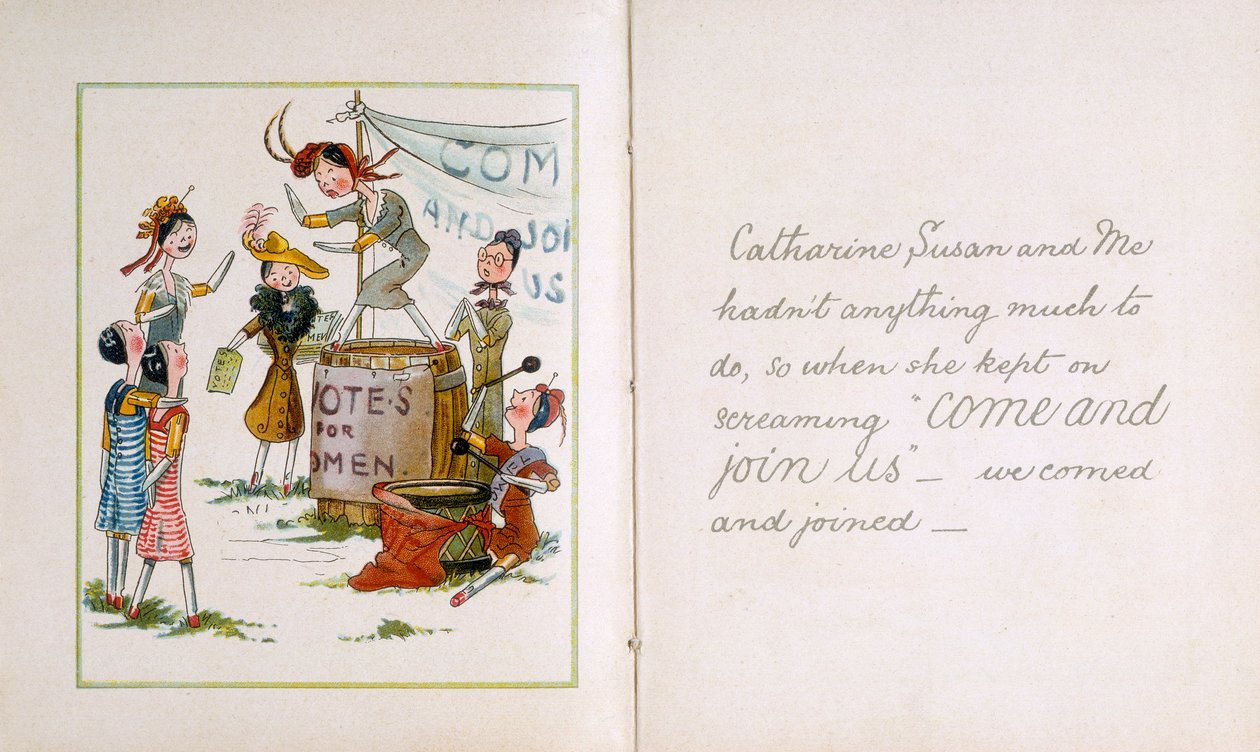 COM
AND JOI
US
VOTES
MEN
VOTE.S
FOR
OMEN.
Catharine Susan and Me
hadn't anything much to
do, so when she kept on
screaming "come and
join us" — we comed
and joined —